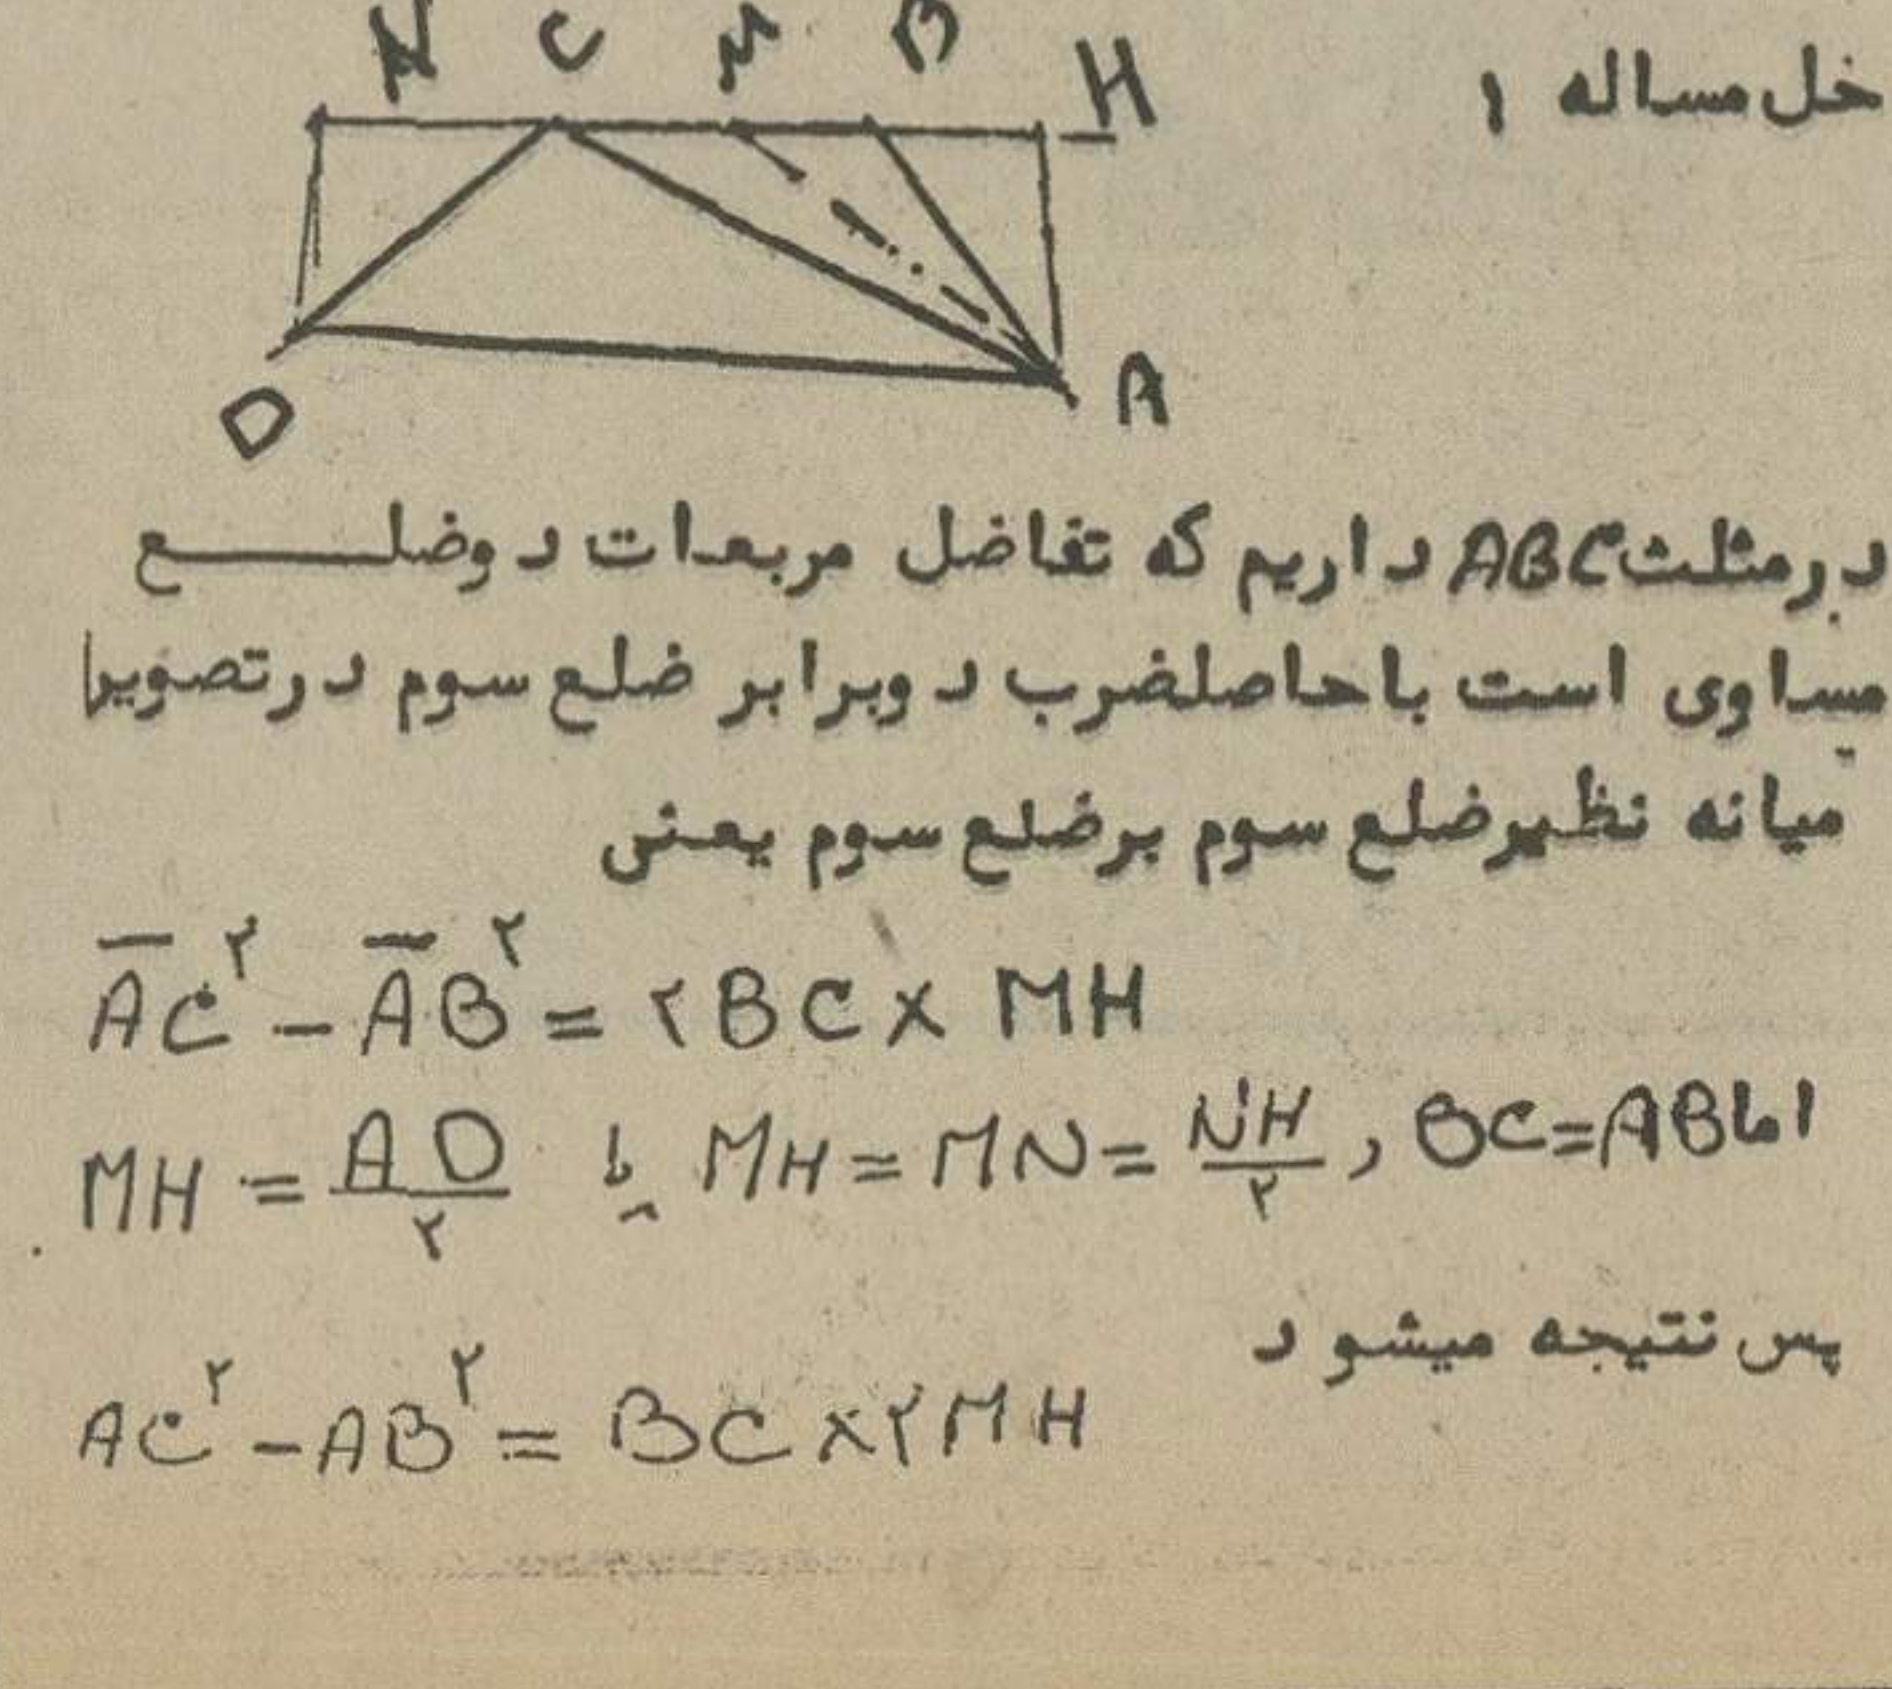 N C M B H
خل مساله ۱
D A
در مثلث ABC داریم که تفاضل مربعات دوضلـــــع
مساوی است با حاصلضرب دوبرابر ضلع سوم در تصویر
میانه نظیر ضلع سوم بر ضلع سوم یعنی
AC² - AB² = ۲BC × MH
MH = AD/۲ یا MH = MN = NH/۲ , BC = AB اما
پس نتیجه میشود
AC² - AB² = BC × ۲MH